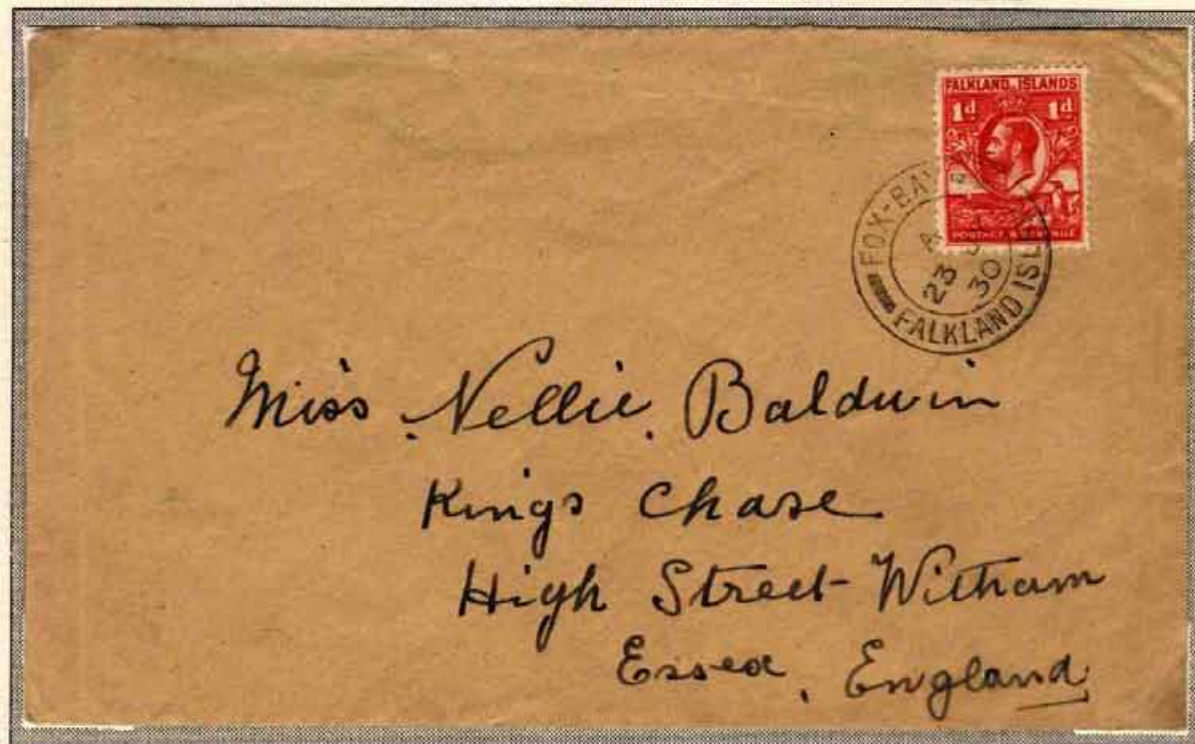 FALKLAND ISLANDS
1d 1d
POSTAGE & REVENUE
FOX-BAY
A
23
30
FALKLAND ISL
Miss Nellie Baldwin
Kings Chase
High Street Witham
Essex, England